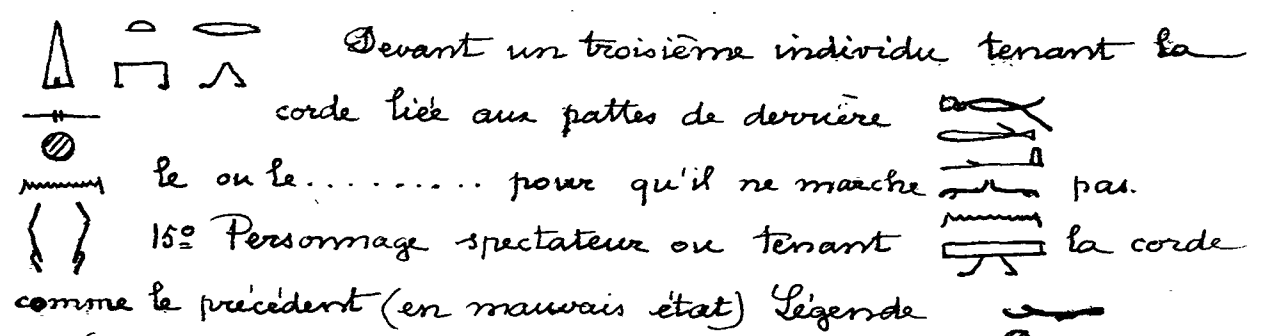 Devant un troisième individu tenant la
corde liée aux pattes de derrière
le ou le.......... pour qu'il ne marche pas.
15º Personnage spectateur ou tenant la corde
comme le précédent (en mauvais état) Légende